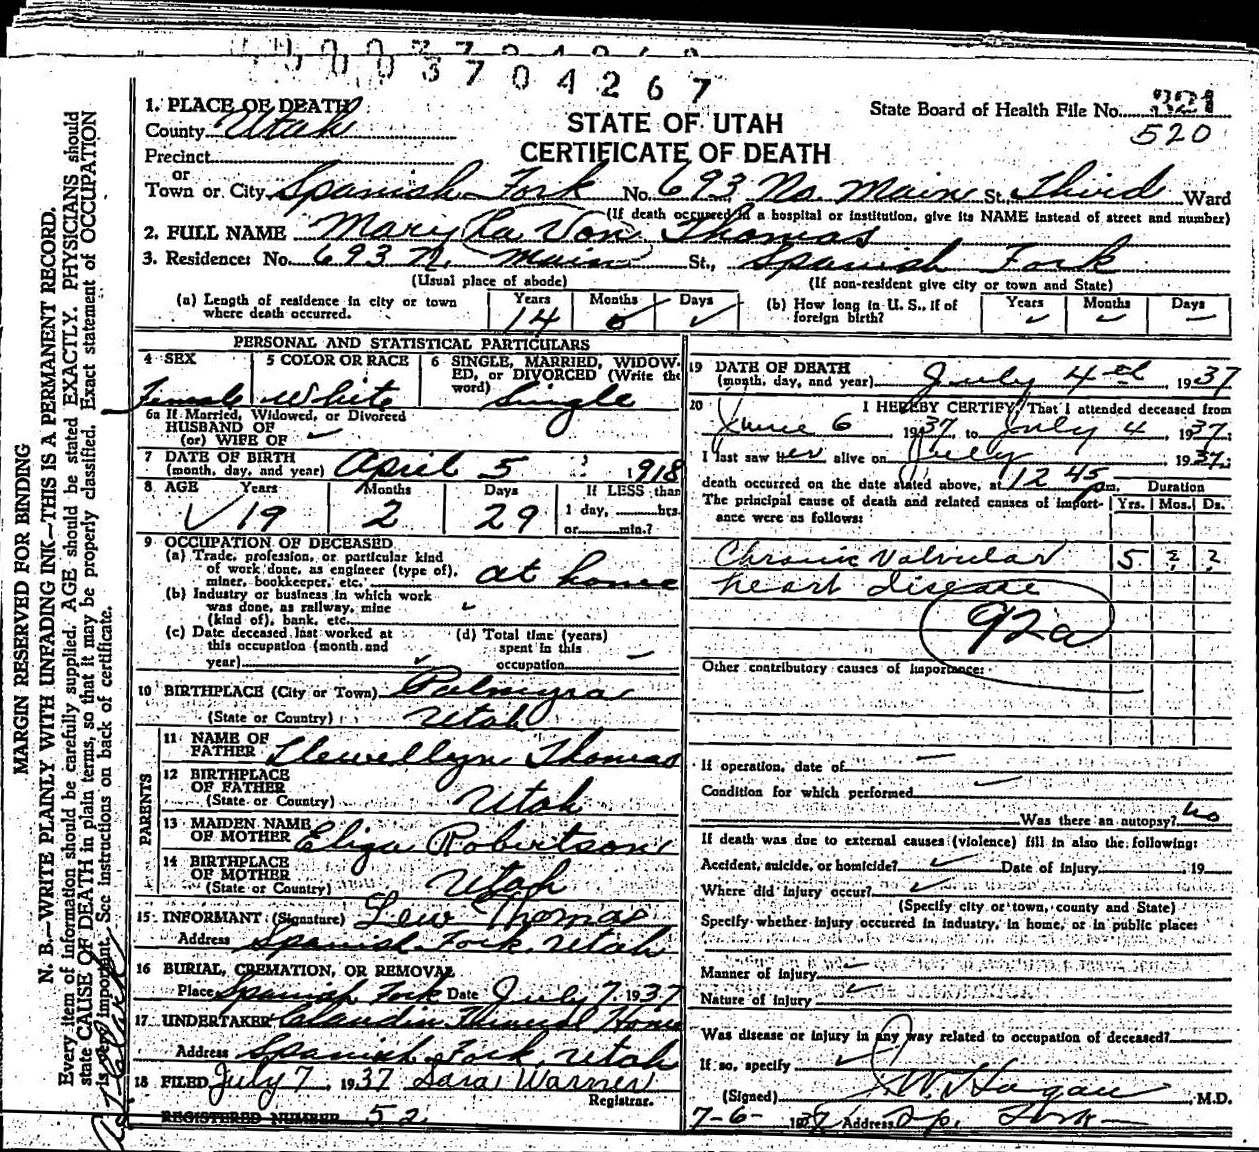 3704267
1. PLACE OF DEATH
County Utah
STATE OF UTAH
CERTIFICATE OF DEATH
State Board of Health File No.
520
Precinct
or
Town or City Spanish Fork No. 693 No. Main St. Third Ward
(If death occurred in a hospital or institution, give its NAME instead of street and number)
2. FULL NAME Mary La Von Thomas
3. Residence: No. 693 N. Main St., Spanish Fork
(Usual place of abode) (If non-resident give city or town and State)
(a) Length of residence in city or town where death occurred. Years 14 Months 0 Days
(b) How long in U. S., if of foreign birth? Years Months Days
PERSONAL AND STATISTICAL PARTICULARS
4 SEX Female
5 COLOR OR RACE White
6 SINGLE, MARRIED, WIDOWED, or DIVORCED (Write the word) Single
6a If Married, Widowed, or Divorced
HUSBAND OF
(or) WIFE OF
7 DATE OF BIRTH
(month, day, and year) April 5 1918
8 AGE Years 19 Months 2 Days 29 If LESS than 1 day, hrs. or min.?
9 OCCUPATION OF DECEASED
(a) Trade, profession, or particular kind
of work done, as engineer (type of),
miner, bookkeeper, etc. at home
(b) Industry or business in which work
was done, as railway, mine
(kind of), bank, etc.
(c) Date deceased last worked at
this occupation (month and
year)
(d) Total time (years)
spent in this
occupation
10 BIRTHPLACE (City or Town) Palmyra
(State or Country) Utah
PARENTS
11 NAME OF FATHER Llewellyn Thomas
12 BIRTHPLACE OF FATHER
(State or Country) Utah
13 MAIDEN NAME OF MOTHER Eliza Robertson
14 BIRTHPLACE OF MOTHER
(State or Country) Utah
15 INFORMANT (Signature) Lew Thomas
Address Spanish Fork, Utah
16 BURIAL, CREMATION, OR REMOVAL
Place Spanish Fork Date July 7, 1937
17 UNDERTAKER Claudin Funeral Home
Address Spanish Fork, Utah
18 FILED July 7, 1937 Sara Warner
Registrar.
REGISTERED NUMBER 52
19 DATE OF DEATH
(month, day, and year) July 4th, 1937
20 I HEREBY CERTIFY, That I attended deceased from
June 6 1937, to July 4, 1937;
I last saw her alive on July 1937;
death occurred on the date stated above, at 12 45 pm. Duration
The principal cause of death and related causes of importance were as follows: Yrs. Mos. Ds.
Chronic Valvular 5 ? ?
heart disease
92a
Other contributory causes of importance:
If operation, date of
Condition for which performed
Was there an autopsy? no
If death was due to external causes (violence) fill in also the following:
Accident, suicide, or homicide? Date of injury 19
Where did injury occur?
(Specify city or town, county and State)
Specify whether injury occurred in industry, in home, or in public place:
Manner of injury
Nature of injury
Was disease or injury in any way related to occupation of deceased?
If so, specify
(Signed) W. Hagan, M.D.
7-6- 1937 Address Sp. Fork
MARGIN RESERVED FOR BINDING
N. B.—WRITE PLAINLY WITH UNFADING INK—THIS IS A PERMANENT RECORD.
Every item of information should be carefully supplied. AGE should be stated EXACTLY. PHYSICIANS should
state CAUSE OF DEATH in plain terms, so that it may be properly classified. Exact statement of OCCUPATION
is very important. See instructions on back of certificate.